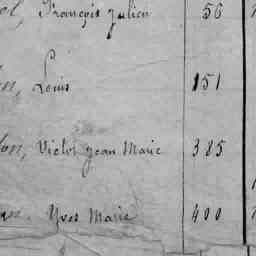 François Julien 56
Louis 151
Victor Jean Marie 385
Yves Marie 400